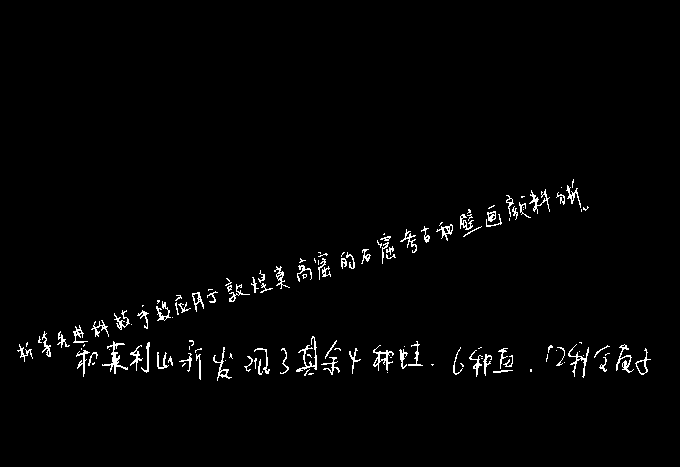 析等先进科技手段应用于敦煌莫高窟的石窟考古和壁画颜料分析。
和莱利山新发现了其余4种蛙、6种鱼、12种